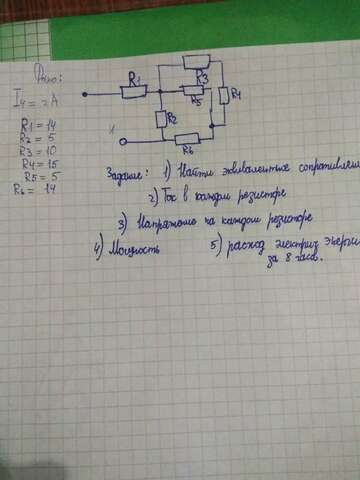 Дано:
I4 = 2А
R1 = 14
R2 = 5
R3 = 10
R4 = 15
R5 = 5
R6 = 14
R1
R3
R5
R4
R2
R6
Задание: 1) Найти эквивалентное сопротивлени
2) Ток в каждом резисторе
3) Напряжение на каждом резисторе
4) Мощность 5) расход электрич энерги
за 8 часов.